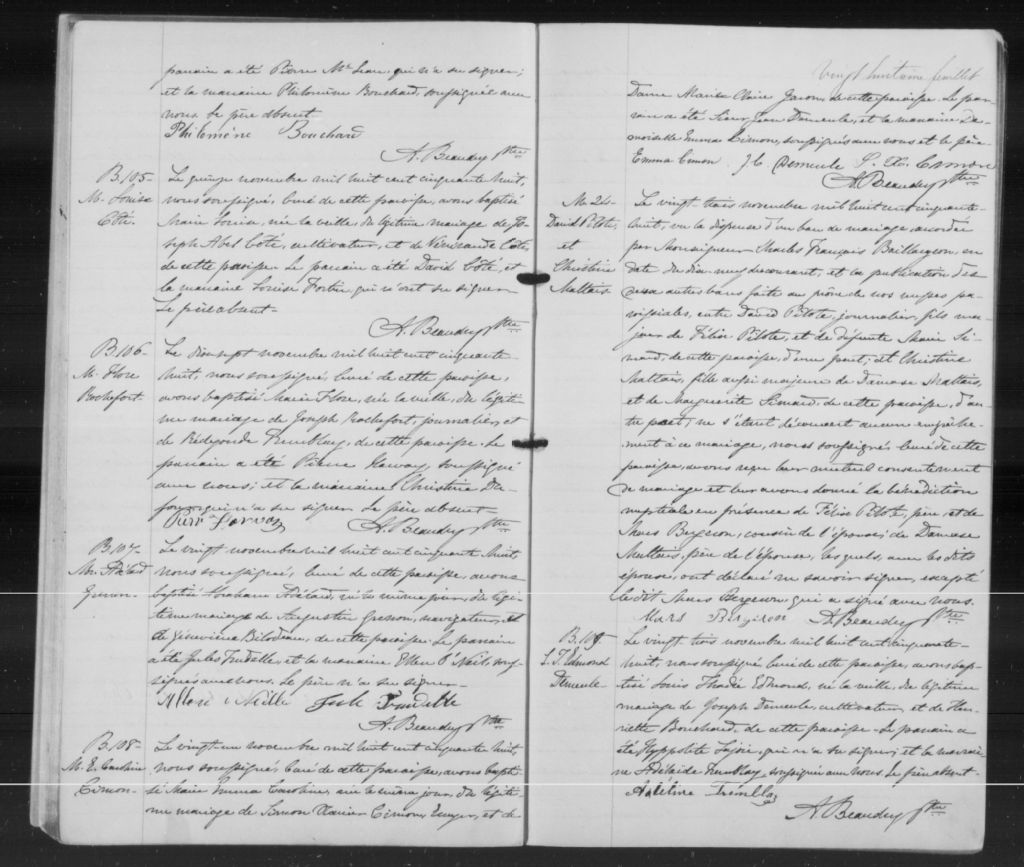 parrain a été Pierre McLean, qui n'a su signer;
et la marraine Philomène Bouchard, soussignée avec
nous. Le père absent.
Philomène Bouchard
A. Beaudry Ptre
B. 105-
M. Louise
Côté.
Le quinze novembre mil huit cent cinquante huit,
nous soussigné, Curé de cette paroisse, avons baptisé
Marie Louise, née la veille, du légitime mariage de Jo-
seph Abel Côté, cultivateur, et de Vénérande Côté,
de cette paroisse. Le parrain a été David Côté, et
la marraine Louise Fortin qui n'ont su signer.
Le père absent.
A. Beaudry Ptre
B. 106-
M. Flore
Rochefort
Le dix-sept novembre mil huit cent cinquante-
huit, nous soussigné, Curé de cette paroisse,
avons baptisé Marie Flore, née la veille, du légiti-
me mariage de Joseph Rochefort, journalier, et
de Rédegonde Tremblay, de cette paroisse. Le
parrain a été Pierre soussigné
avec nous; et la marraine Christine Du-
four qui n'a su signer. Le père absent.
A. Beaudry Ptre
B. 107-
Adélard
Grenon.
Le vingt novembre mil huit cent cinquante huit,
nous soussigné, Curé de cette paroisse, avons
baptisé Abraham Adélard, né le même jour, du légi-
time mariage de Augustin Grenon, navigateur, et
de Geneviève Bilodeau, de cette paroisse. Le parrain
a été Jules Trudelle, et la marraine Ellen O'Neil, sous-
signés avec nous. Le père n'a su signer.
Trudelle
A. Beaudry Ptre
B. 108-
M. E. Caroline
Cimon-
Le vingt-un novembre mil huit cent cinquante huit,
nous soussigné, Curé de cette paroisse, avons bapti-
sé Marie Emma Caroline, née le même jour, du légiti-
me mariage de Simon Xavier Cimon, Ecuyer, et de
Vingt huitième feuillet
Dame Marie Claire Garon, de cette paroisse. Le par-
rain a été Sieur Jean Demeule, et la marraine De-
moiselle Emma Cimon, soussignés avec nous et le père.
Emma Cimon J. C. Demeule S. X. Cimon
A. Beaudry Ptre
M. 24-
David Pilote,
et
Christine
Maltais.
Le vingt trois novembre mil huit cent cinquante-
huit, vu la dispense d'un banc de mariage accordée
par Monseigneur Charles François Baillargeon, en
date du dix-neuf du courant, et la publication des
deux autres bans faite au prône de nos messes pa-
roissiales, entre David Pilote, journalier, fils ma-
jeur de Félix Pilote, et de défunte Marie Si-
mard, de cette paroisse, d'une part; et Christine
Maltais, fille aussi majeure de Damase Maltais,
et de Marguerite Simard, de cette paroisse, d'au-
tre part; ne s'étant découvert aucun empêche-
ment à ce mariage, nous soussigné, Curé de cette
paroisse, avons reçu leur mutuel consentement
de mariage et leur avons donné la bénédiction
nuptiale en présence de Félix Pilote, père, et de
Mars Bergeron, cousin de l'époux; de Damase
Maltais, père de l'épouse, lesquels, avec les dits
époux, ont déclaré ne savoir signer, excepté
le dit Mars Bergeron qui a signé avec nous.
Mars Bergeron A. Beaudry Ptre
B. 109
L. T. Edmond
Demeule-
Le vingt trois novembre mil huit cent cinquante-
huit, nous soussigné Curé de cette paroisse, avons bap-
tisé Louis Thadée Edmond, né la veille, du légitime
mariage de Joseph Demeule, cultivateur, et de Hen-
riette Bouchard, de cette paroisse. Le parrain a
été Hyppolite Lajoie, qui n'a su signer; et la marrai-
ne Adélaïde Tremblay, soussignée avec nous. Le père absent.
Adéline Tremblay
A. Beaudry Ptre